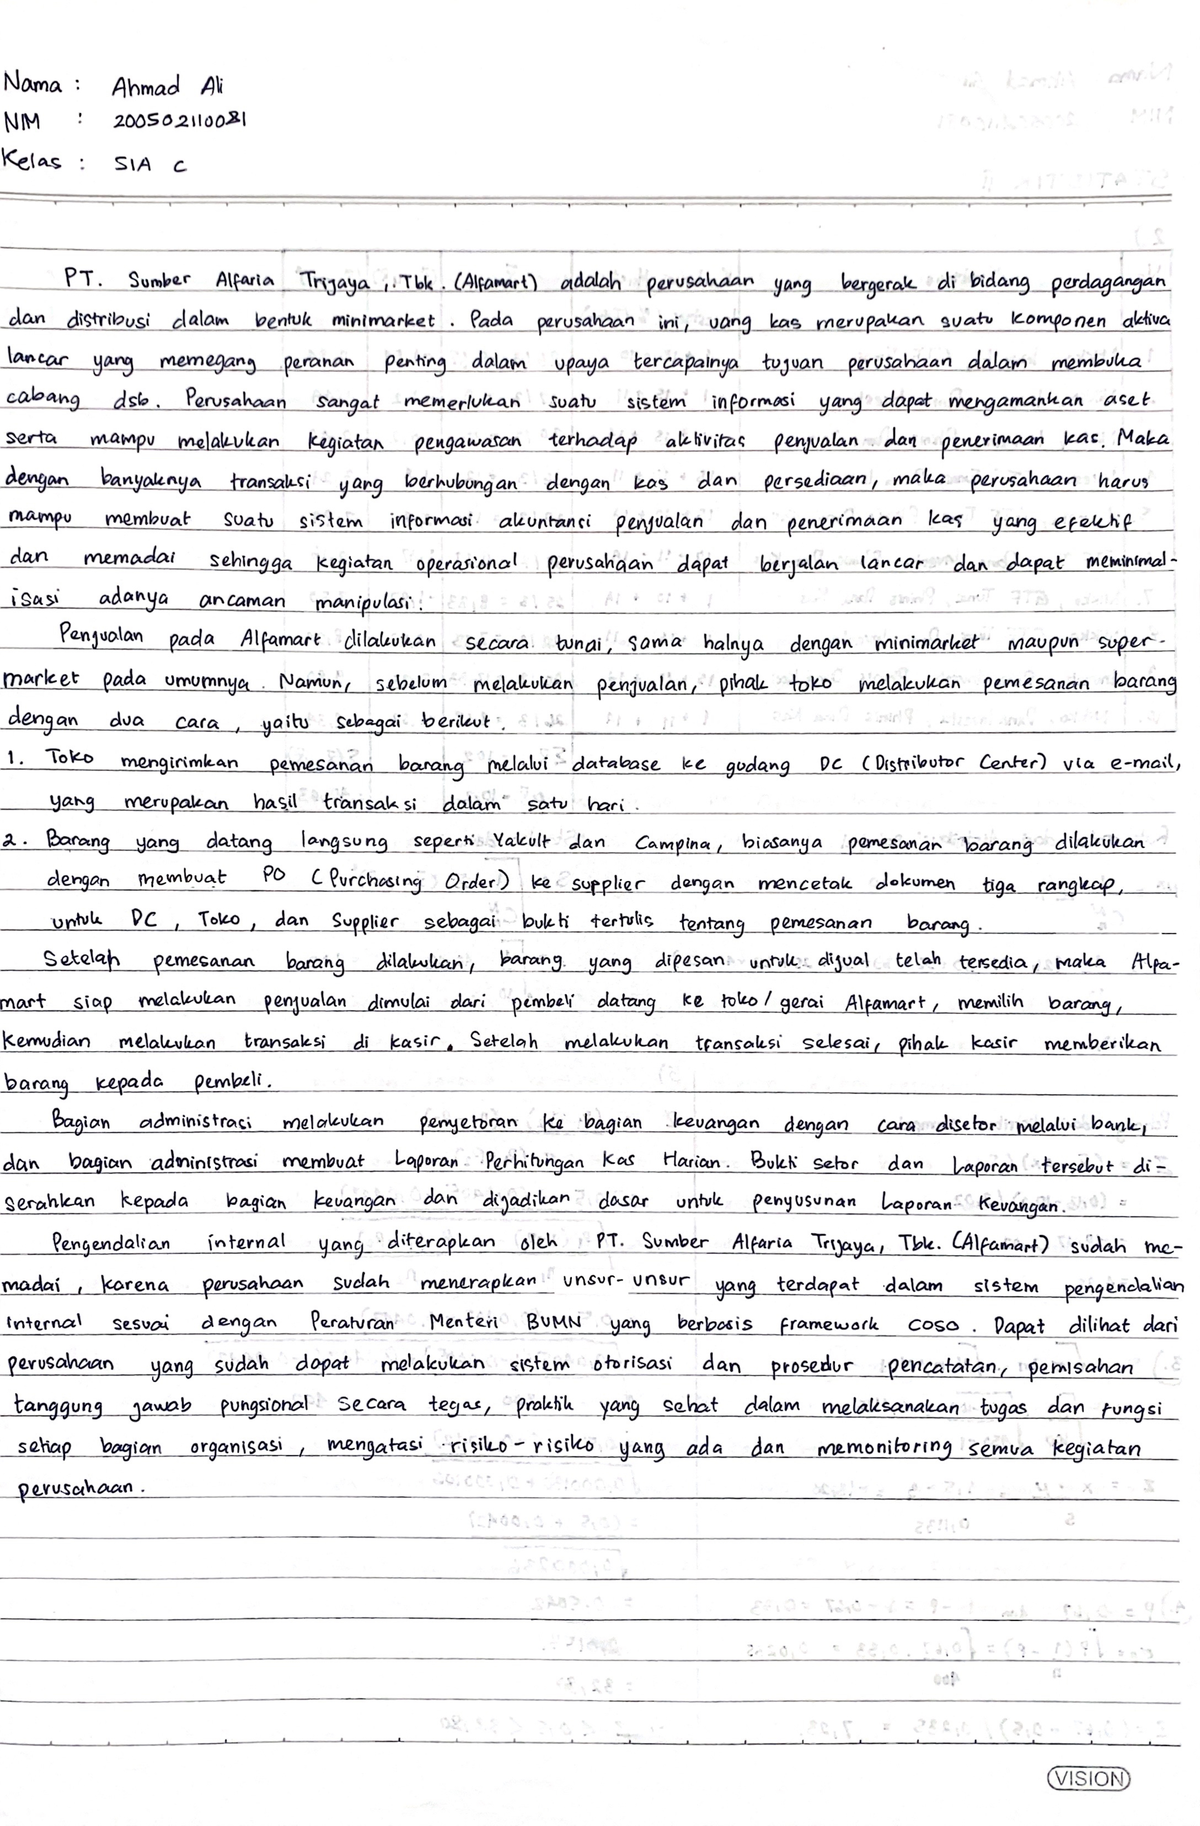 Nama : Ahmad Ali
NIM : 200502110081
Kelas : SIA C
PT. Sumber Alfaria Trijaya, Tbk. (Alfamart) adalah perusahaan yang bergerak di bidang perdagangan
dan distribusi dalam bentuk minimarket. Pada perusahaan ini, uang kas merupakan suatu komponen aktiva
lancar yang memegang peranan penting dalam upaya tercapainya tujuan perusahaan dalam membuka
cabang dsb. Perusahaan sangat memerlukan suatu sistem informasi yang dapat mengamankan aset
serta mampu melakukan kegiatan pengawasan terhadap aktivitas penjualan dan penerimaan kas. Maka
dengan banyaknya transaksi yang berhubungan dengan kas dan persediaan, maka perusahaan harus
mampu membuat suatu sistem informasi akuntansi penjualan dan penerimaan kas yang efektif
dan memadai sehingga kegiatan operasional perusahaan dapat berjalan lancar dan dapat meminimal-
isasi adanya ancaman manipulasi.
Penjualan pada Alfamart dilakukan secara tunai, sama halnya dengan minimarket maupun super-
market pada umumnya. Namun, sebelum melakukan penjualan, pihak toko melakukan pemesanan barang
dengan dua cara, yaitu sebagai berikut.
1. Toko mengirimkan pemesanan barang melalui database ke gudang DC (Distributor Center) via e-mail,
yang merupakan hasil transaksi dalam satu hari.
2. Barang yang datang langsung seperti Yakult dan Campina, biasanya pemesanan barang dilakukan
dengan membuat PO (Purchasing Order) ke supplier dengan mencetak dokumen tiga rangkap,
untuk DC, Toko, dan Supplier sebagai bukti tertulis tentang pemesanan barang.
Setelah pemesanan barang dilakukan, barang yang dipesan untuk dijual telah tersedia, maka Alfa-
mart siap melakukan penjualan dimulai dari pembeli datang ke toko/gerai Alfamart, memilih barang,
kemudian melakukan transaksi di kasir. Setelah melakukan transaksi selesai, pihak kasir memberikan
barang kepada pembeli.
Bagian administrasi melakukan penyetoran ke bagian keuangan dengan cara disetor melalui bank,
dan bagian administrasi membuat Laporan Perhitungan Kas Harian. Bukti setor dan Laporan tersebut di-
serahkan kepada bagian keuangan dan dijadikan dasar untuk penyusunan Laporan Keuangan.
Pengendalian internal yang diterapkan oleh PT. Sumber Alfaria Trijaya, Tbk. (Alfamart) sudah me-
madai, karena perusahaan sudah menerapkan unsur-unsur yang terdapat dalam sistem pengendalian
internal sesuai dengan Peraturan Menteri BUMN yang berbasis framework COSO. Dapat dilihat dari
perusahaan yang sudah dapat melakukan sistem otorisasi dan prosedur pencatatan, pemisahan
tanggung jawab pungsional secara tegas, praktik yang sehat dalam melaksanakan tugas dan fungsi
setiap bagian organisasi, mengatasi risiko-risiko yang ada dan memonitoring semua kegiatan
perusahaan.
VISION